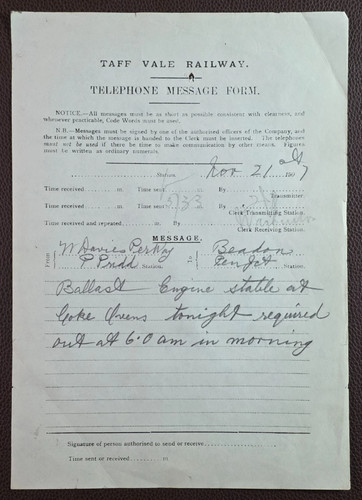 TAFF VALE RAILWAY.
TELEPHONE MESSAGE FORM.
NOTICE.—All messages must be as short as possible consistent with clearness, and
whenever practicable, Code Words must be used.
N.B.—Messages must be signed by one of the authorised officers of the Company, and
the time at which the message is handed to the Clerk must be inserted. The telephones
must not be used if there be time to make communication by other means. Figures
must be written as ordinary numerals.
Station, Nov 21 190
Time received m Time sent By
Transmitter.
Time received m Time sent 9/33 By
Clerk Transmitting Station.
Time received and repeated m By
Clerk Receiving Station.
MESSAGE.
From W Davies to Beadon
Station. Station.
Ballast Engine stable at
Coke Ovens tonight required
out at 6.0 am in morning
Signature of person authorised to send or receive
Time sent or received m